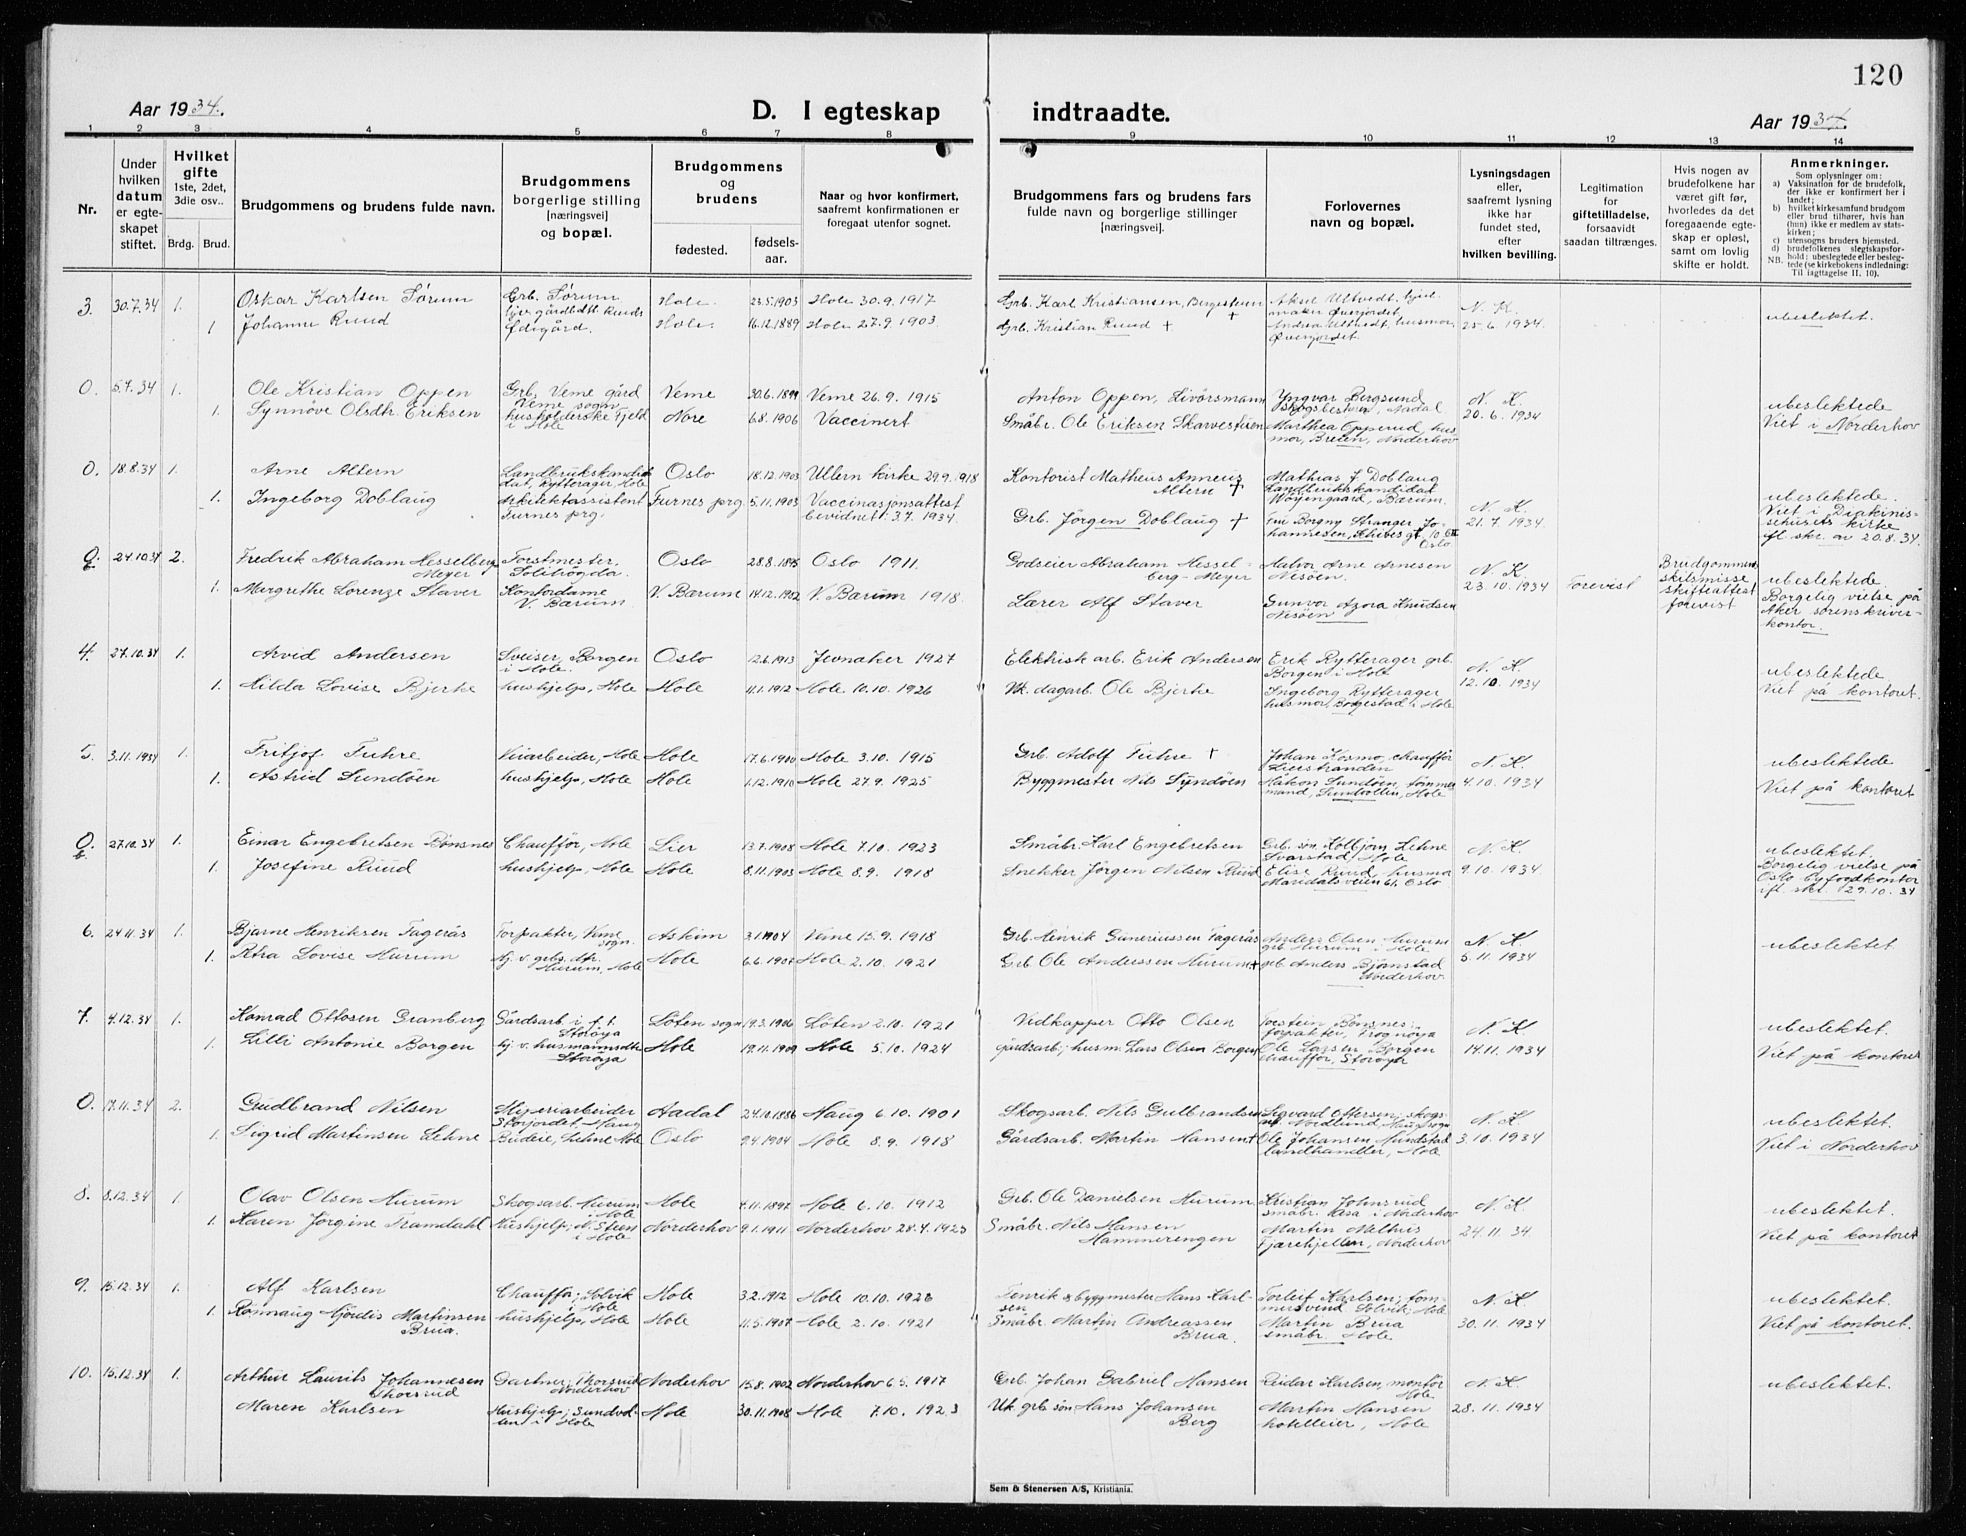 120
Aar 1934.
D. I egteskap indtraadte.
Aar 1934.
1 2 3 4 5 6 7 8 9 10 11 12 13 14
Nr.
Under hvilken datum er egteskapet stiftet.
Hvilket gifte 1ste, 2det, 3die osv..
Brdg. Brud.
Brudgommens og brudens fulde navn.
Brudgommens borgerlige stilling [næringsvei] og bopæl.
Brudgommens og brudens
fødested. fødselsaar.
Naar og hvor konfirmert, saafremt konfirmationen er foregaat utenfor sognet.
Brudgommens fars og brudens fars fulde navn og borgerlige stillinger [næringsvei].
Forlovernes navn og bopæl.
Lysningsdagen eller, saafremt lysning ikke har fundet sted, efter hvilken bevilling.
Legitimation for giftetilladelse, forsaavidt saadan tiltrænges.
Hvis nogen av brudefolkene har været gift før, hvorledes da det foregaaende egteskap er opløst, samt om lovlig skifte er holdt.
Anmerkninger.
Som oplysninger om:
a) Vaksination for de brudefolk, der ikke er konfirmert her i landet;
b) hvilket kirkesamfund brudgom eller brud tilhører, hvis han (hun) ikke er medlem av statskirken;
c) utensogns bruders hjemsted.
d) brudefolkenes slegtskapsforhold: ubeslegtede eller beslegtede (se kirkebokens indledning: Til iagttagelse II. 10).
NB.
3 30.7.34 1. Oskar Karlsen Sørum Grb. Sørum Hole. 23.5.1903 Hole 30.9.1917 Grb. Karl Kristiansen, Borgestuen + N. K. ubeslektet.
1 Johanne Ruud Hole. 16.12.1889 Hole 27.9.1903. Grb. Kristian Ruud + 25.6.1934.
0. 5.7.34 1. Ole Kristian Oppen Grb. Veme gård Veme sogn Veme 30.6.1899 Veme 26.9.1915 Anton Oppen, Yngvar Bergsund N. K. ubeslektede
1. Synnöve Olsdh. Eriksen husholderske i Hole Nore 6.8.1906 Vaccinert Småbr. Ole Eriksen Marthea Opperud, husmor, Breien, Norderhov 20.6.1934 Viet i Norderhov
0. 18.8.34 1. Arne Altern Landbrukskandidat, Rytterager, Hole Oslo 18.12.1903 Ullern kirke 29.9.1918 Kontorist Matheus Anneus Altern + Mathias J Doblaug Landbrukskandidat Bærum. N. K. ubeslektede.
1. Ingeborg Doblaug Arkitektassistent Furnes prg. Furnes prg. 5.11.1903 Vaccinasjonsattest bevidnet 3.7.1934. Grb. Jörgen Doblaug + 21.7.1934 Viet i Diakonissehusets kirke ifl skr. av 20.8.34.
0 24.10.34 2. Fredrik Abraham Hesselberg Meyer Forstmester, Sollihögda. Oslo 28.8.1895 Oslo 1911. Godseier Abraham Hesselberg-Meyer Halvor Arne Arnesen Nesöen. N. K. Forevist Brudgommens skilsmisse skifteattest forevist ubeslektede.
1. Margrethe Lorenze Staver Kontordame V. Bærum V. Bærum 14.12.1902 V. Bærum 1918. Lærer Alf Staver Gunvor Knudsen Nesöen 23.10.1934 Borgelig vielse på Aker sorenskriverkontor.
4. 27.10.34 1. Arvid Andersen Sveiser, Borgen i Hole Oslo 12.6.1913 Jevnaker 1927 Elektrisk arb. Erik Andersen Erik Rytterager grb. Borgen i Hole N. K. ubeslektede
1. Hilda Lovise Bjerke hushjelp, Hole Hole 11.1.1912 Hole 10.10.1926 dagarb. Ole Bjerke Ingeborg Rytterager husmor, Borgestad i Hole 12.10.1934 Viet på kontoret.
5. 3.11.1934 1. Fritjof Fuhre Veiarbeider, Hole Hole 17.6.1900 Hole 3.10.1915 Grb. Adolf Fuhre + Johan Kosmo, chauffør N. K. ubeslektede
1. Astrid Sundöen hushjelp, Hole Hole 1.12.1910 Hole 27.9.1925 Byggmester Nils Syndöen Håkon Sundöen, tömmermand, Sundvollen, Hole 4.10.1934 Viet på kontoret
0. 27.10.34 1. Einar Engebretsen Bönsnes Chauffør, Hole Lier 13.7.1908 Hole 7.10.1923 Småbr. Karl Engebretsen Grb. sön Kolbjörn Lehne Svarstad, Hole N. K. ubeslektet.
1. Josefine Ruud hushjelp, Hole Hole 8.11.1903 Hole 8.9.1918 Snekker Jörgen Nilsen Ruud Elise Ruud, husmor Maridalsveien 61. Oslo 9.10.1934. Borgelig vielse på Oslo byfogdkontor ifl. skr. 29.10.34
6. 24.11.34 1. Bjarne Henriksen Fagerås Forpakter, Veme sogn. Askim 3.1.1904 Veme 15.9.1918 Grb. Henrik Gunerius­sen Fagerås Anders Olsen Hurum grb. Hurum i Hole N. K. ubeslektet
1. Lovise Hurum Hj. v. grbs. dtr. Hurum, Hole Hole 6.6.1907 Hole 2.10.1921 Grb Ole Anderssen Hurum + grb Anders Bjørnstad Norderhov. 5.11.1934
7. 4.12.34 1. Konrad Ottosen Granberg Gårdsarb. i f. t. Storöya Löten sogn 19.3.1906 Löten 2.10.1921 Vedkapper Otto Olsen Torstein Bönsnes, forpakter, Frognöya N. K. ubeslektet.
1. Lilli Antonie Borgen hj. v. husmannsdtr Storöya Hole 19.11.1909 Hole 5.10.1924 gårdsarb; husm. Lars Olsen Borgen Ole Larsen Borgen chauffør, Storöya 14.11.1934 Viet på kontoret
0. 17.11.34 2. Gudbrand Nilsen Meieriarbeider Storjordet, Haug Aadal 24.10.1886 Haug 6.10.1901 Skogsarb. Nils Gulbrandsen Sigvard Ottersen, skogsarb. Nordlund, Haug sogn N. K. ubeslektet.
1. Sigrid Martinsen Lehne Budeie, Lehne Hole Oslo 9.4.1904 Hole 8.9.1918 Gårdsarb. Martin Hansen + Ole Johansen Sundstad landhandler, Hole 3.10.1934 Viet i Norderhov
8. 8.12.34 1. Olav Olsen Hurum Skogsarb. Hurum i Hole Hole 4.11.1897 Hole 6.10.1912 Grb. Ole Danielsen Hurum Kristian Johnsrud småbr. Aasa i Norderhov N. K. ubeslektet.
1. Karen Jörgine Framdahl Hushjelp; N. Steen i Hole Norderhov 9.1.1911 Norderhov 28.4.1925 Småbr. Nils Hansen Hammerengen Martin Melhus Fjærehjellen, Norderhov 24.11.34. Viet på kontoret
9. 15.12.34 1. Alf Karlsen Chauffør; Solvik i Hole Hole 3.2.1912 Hole 10.10.1926 byggmester Hans Karlsen Torleif Karlsen; tømmersvend Solvik; Hole N. K. ubeslektet.
1. Rönnaug Hjördis Martinsen Brua. hushjelp, Hole Hole 11.5.1907 Hole 2.10.1921 Småbr. Martin Andreassen Brua. Martin Brua småbr. Hole 30.11.1934 Viet på kontoret.
10. 15.12.34 1. Arthur Laurits Johannesen Thorsrud Gartner; Thorsrud Norderhov Norderhov 15.8.1902 Norderhov 6.5.1917 Grb. Johan Gabriel Hansen Reidar Karlsen, montør Hole N. K. ubeslektet.
Maren Karlsen Hushjelp; Sundvollen i Hole Hole 30.11.1908 Hole 7.10.1923 grb sön Hans Johansen Berg Martin Hansen hotelleier, Hole 28.11.1934
Sem & Stenersen A/S, Kristiania.